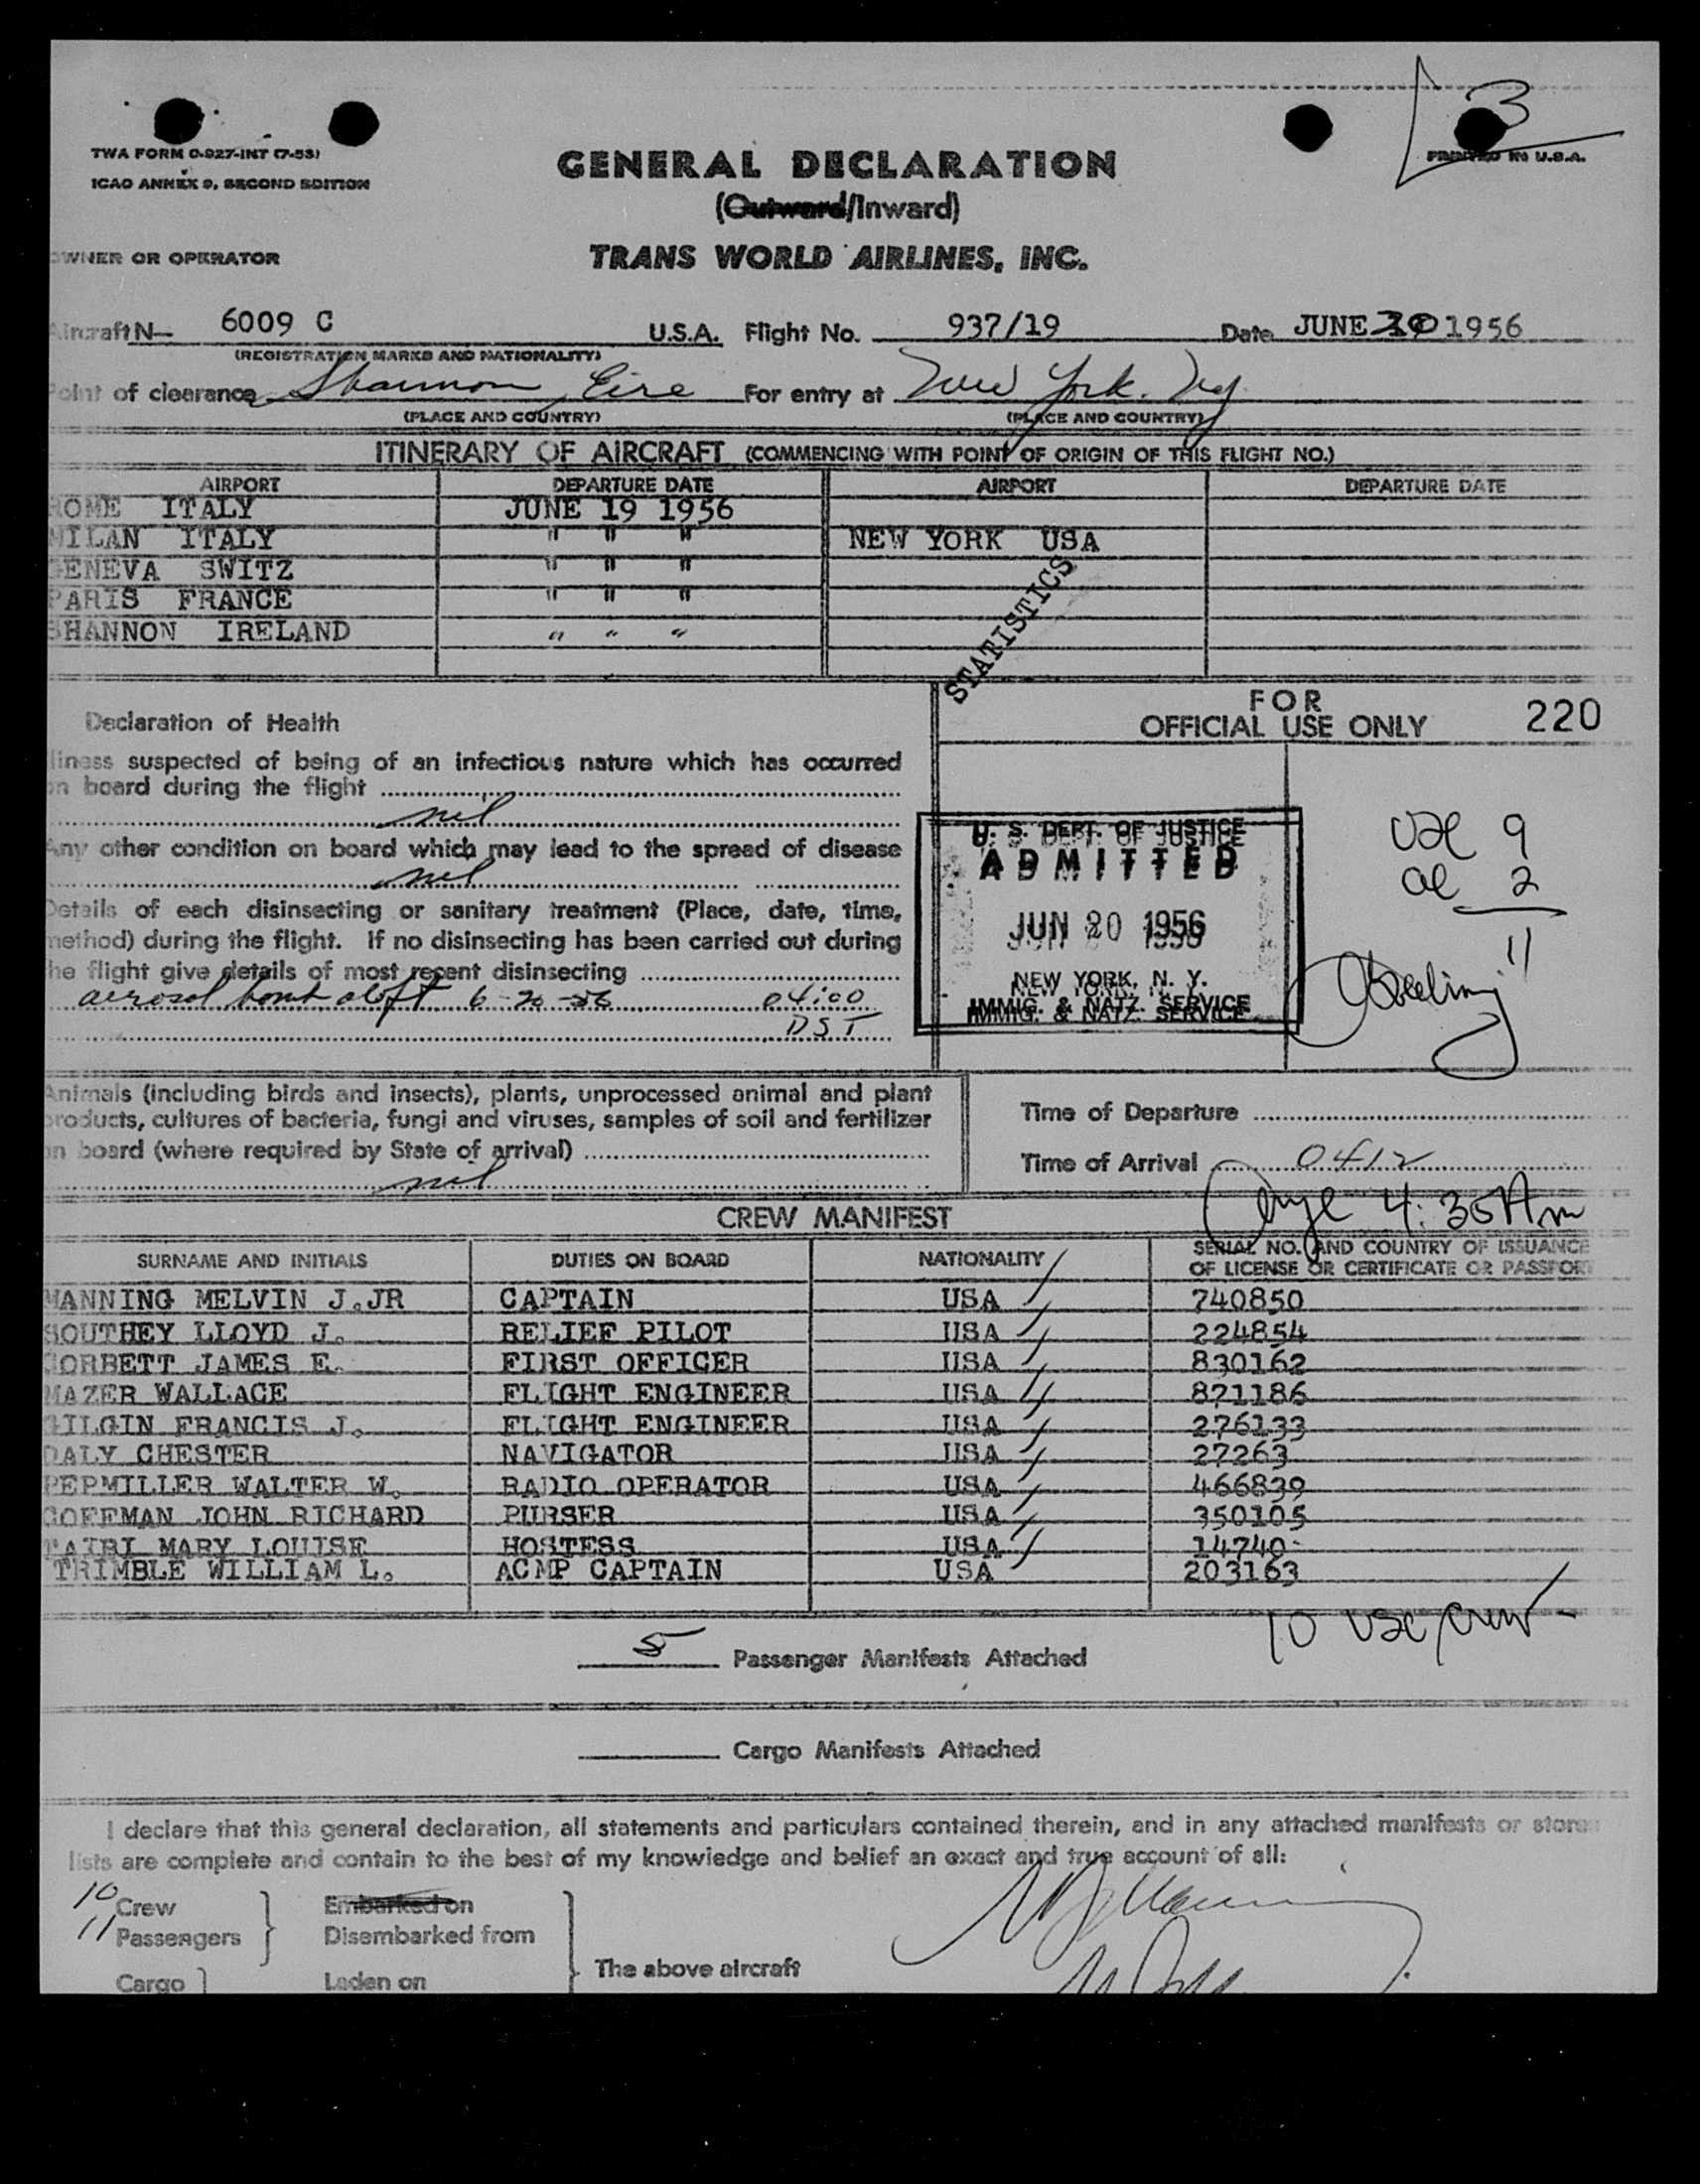 3
TWA FORM O-927-INT (7-53)
PRINTED IN U.S.A.
ICAO ANNEX 9, SECOND EDITION
GENERAL DECLARATION
(Outward/Inward)
OWNER OR OPERATOR
TRANS WORLD AIRLINES, INC.
Aircraft N— 6009 C U.S.A. Flight No. 937/19 Date JUNE 20 1956
(REGISTRATION MARKS AND NATIONALITY)
Point of clearance Shannon, Eire For entry at New York. Ny
(PLACE AND COUNTRY) (PLACE AND COUNTRY)
ITINERARY OF AIRCRAFT (COMMENCING WITH POINT OF ORIGIN OF THIS FLIGHT NO.)
AIRPORT DEPARTURE DATE AIRPORT DEPARTURE DATE
ROME ITALY JUNE 19 1956
MILAN ITALY " " " NEW YORK USA
GENEVA SWITZ " " "
PARIS FRANCE " " "
SHANNON IRELAND " " "
STATISTICS
FOR
OFFICIAL USE ONLY 220
Declaration of Health
Illness suspected of being of an infectious nature which has occurred
on board during the flight
nil
Any other condition on board which may lead to the spread of disease
nil
Details of each disinsecting or sanitary treatment (Place, date, time,
method) during the flight. If no disinsecting has been carried out during
the flight give details of most recent disinsecting
aerosol bomb aloft 6-20-56 04:00
DST
U. S. DEPT. OF JUSTICE
ADMITTED
JUN 20 1956
NEW YORK, N. Y.
IMMIG. & NATZ. SERVICE
USC 9
al 2
11
Animals (including birds and insects), plants, unprocessed animal and plant
products, cultures of bacteria, fungi and viruses, samples of soil and fertilizer
on board (where required by State of arrival)
nil
Time of Departure
Time of Arrival 0412
4:30 Am
CREW MANIFEST
SURNAME AND INITIALS DUTIES ON BOARD NATIONALITY SERIAL NO. AND COUNTRY OF ISSUANCE
OF LICENSE OR CERTIFICATE OR PASSPORT
MANNING MELVIN J.JR CAPTAIN USA 740850
SOUTHEY LLOYD J. RELIEF PILOT USA 224854
CORBETT JAMES E. FIRST OFFICER USA 830162
MAZER WALLACE FLIGHT ENGINEER USA 871186
GILGIN FRANCIS J. FLIGHT ENGINEER USA 276133
DALY CHESTER NAVIGATOR USA 27263
PEPMILLER WALTER W. RADIO OPERATOR USA 466839
COFFMAN JOHN RICHARD PURSER USA 350105
MARY LOUISE HOSTESS USA 14740
TRIMBLE WILLIAM L. ACMP CAPTAIN USA 203163
10 USC crew
5 Passenger Manifests Attached
Cargo Manifests Attached
I declare that this general declaration, all statements and particulars contained therein, and in any attached manifests or stores
lists are complete and contain to the best of my knowledge and belief an exact and true account of all:
10 Crew Embarked on
11 Passengers Disembarked from
The above aircraft
Cargo Laden on